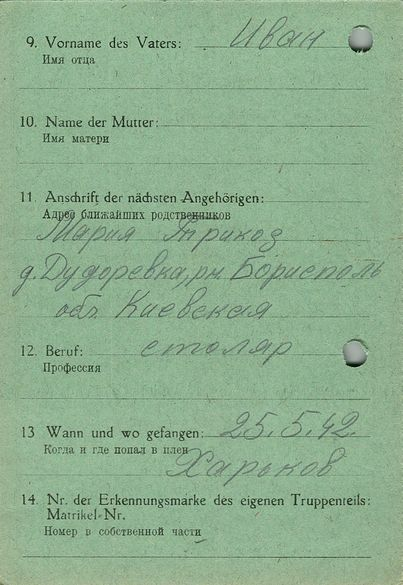 9. Vorname des Vaters: Иван
Имя отца
10. Name der Mutter:
Имя матери
11. Anschrift der nächsten Angehörigen:
Адрес ближайших родственников
Мария Трикоз
д. Дударевка, рн. Борисполь
обл. Киевская
12. Beruf: столяр
Профессия
13 Wann und wo gefangen: 25.5.42.
Когда и где попал в плен
Харьков
14. Nr. der Erkennungsmarke des eigenen Truppenteils:
Matrikel-Nr.
Номер в собственной части